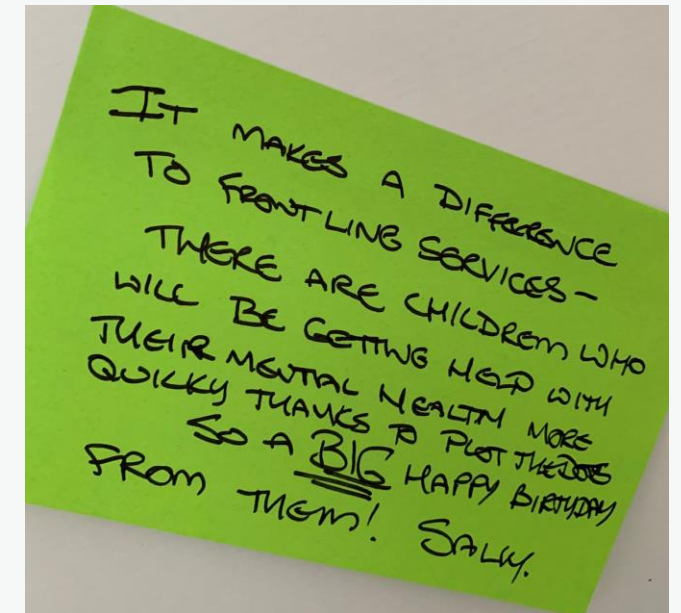 IT MAKES A DIFFERENCE
TO FRONTLINE SERVICES-
THERE ARE CHILDREN WHO
WILL BE GETTING HELP WITH
THEIR MENTAL HEALTH MORE
QUICKLY THANKS TO PLOT THE DOTS
SO A BIG HAPPY BIRTHDAY
FROM THEM! SALLY.